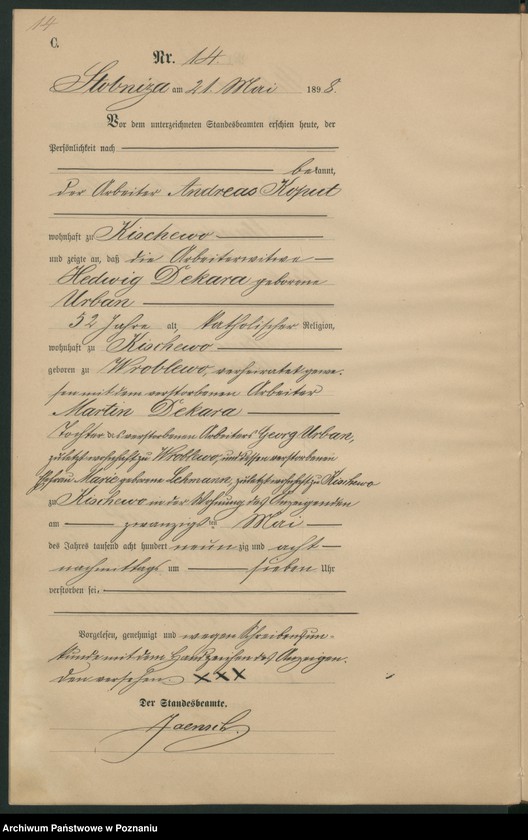 14
C.
Nr. 14.
Stobniza am 21. Mai 1898.
Vor dem unterzeichneten Standesbeamten erschien heute, der
Persönlichkeit nach
bekannt,
der Arbeiter Andreas Koput
wohnhaft zu Kischewo
und zeigte an, daß die Arbeiterwitwe
Hedwig Dekara geborne
Urban
52 Jahre alt, katholischer Religion,
wohnhaft zu Kischewo
geboren zu Wroblewo, verheiratet gewe-
sen mit dem verstorbenen Arbeiter
Martin Dekara
Tochter des verstorbenen Arbeiters Georg Urban,
zuletzt wohnhaft zu Wroblewo, und dessen verstorbenen
Ehefrau Marie geborne Lehmann, zuletzt wohnhaft zu Kischewo
zu Kischewo in der Wohnung des Anzeigenden
am zwanzigsten Mai
des Jahres tausend acht hundert neunzig und acht
nachmittags um sieben Uhr
verstorben sei.
Vorgelesen, genehmigt und wegen Schreibensun-
kunde mit dem Handzeichen des Anzeigen-
den versehen. XXX
Der Standesbeamte.
Jaensch.
Archiwum Państwowe w Poznaniu